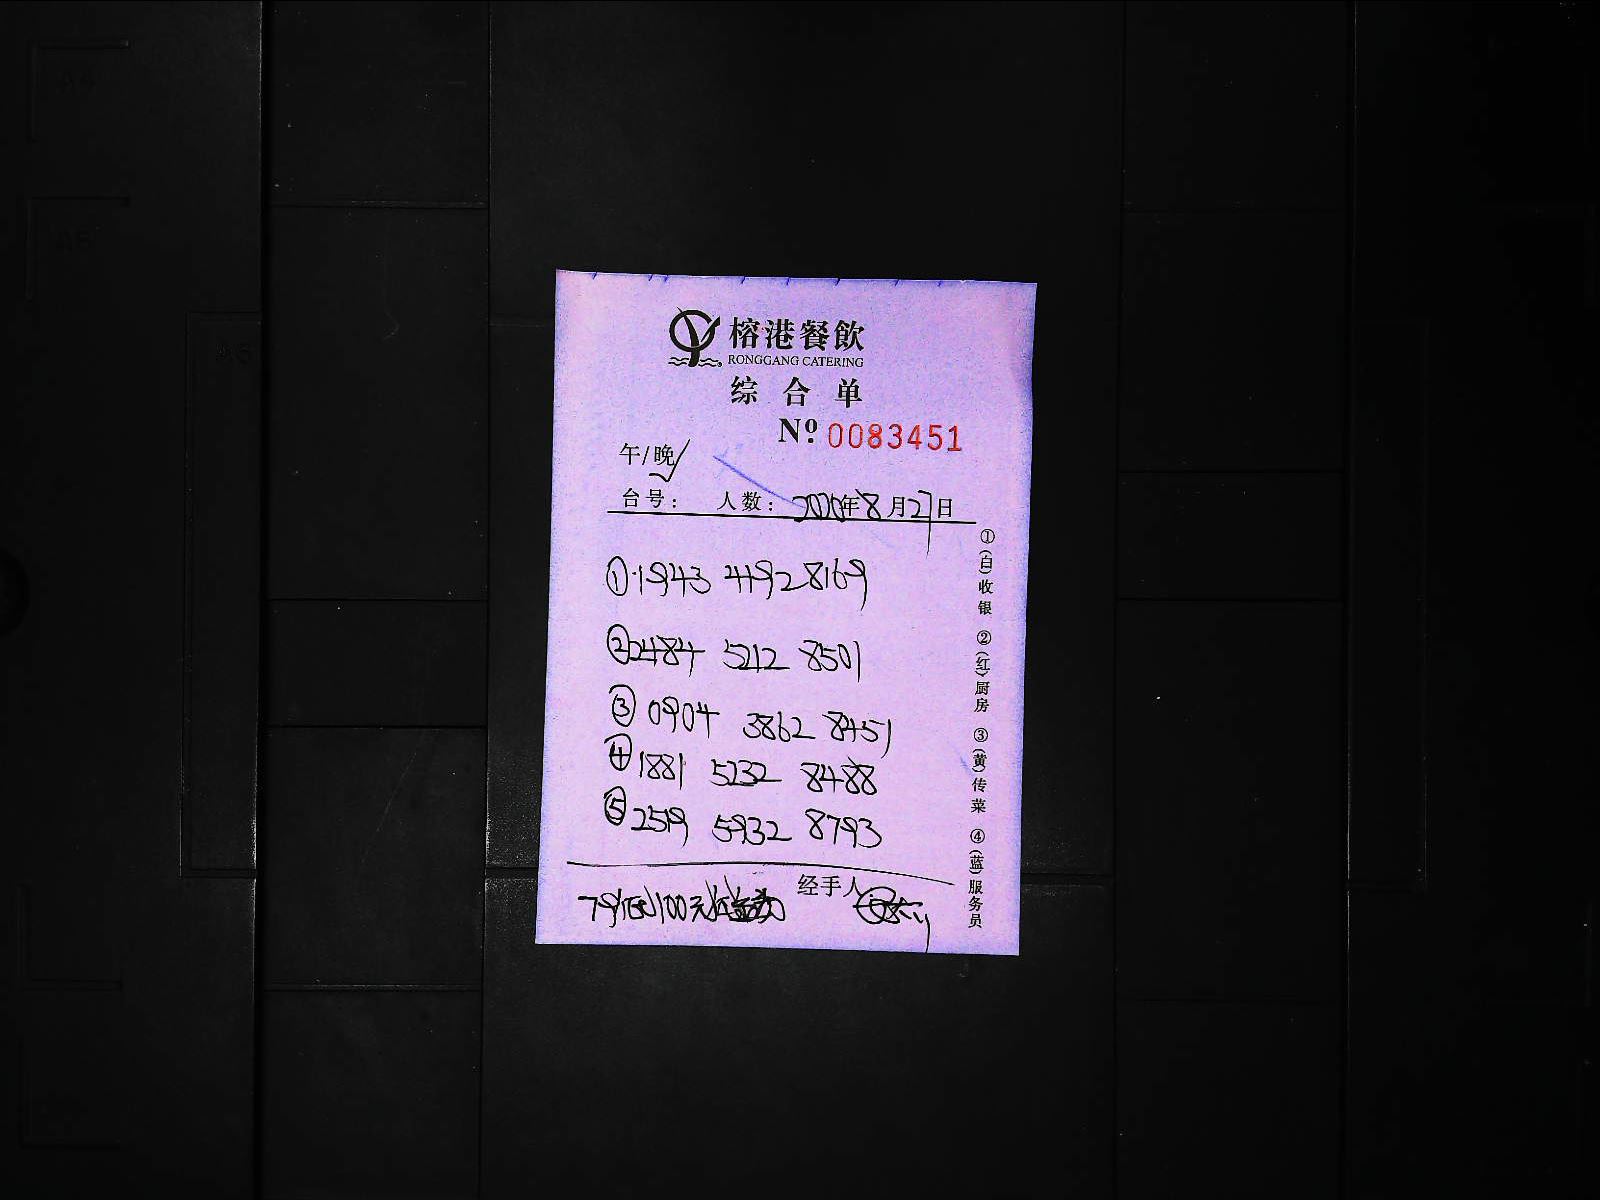 榕港餐飲
RONGGANG CATERING
综合单
Nº 0083451
午/晚
台号: 人数: 2020年8月27日
① 1943 4492 8169
② 2484 5212 8501
③ 0904 3862 8451
④ 1881 5232 8488
⑤ 2519 5932 8793
经手人
100元
①(白)收银 ②(红)厨房 ③(黄)传菜 ④(蓝)服务员